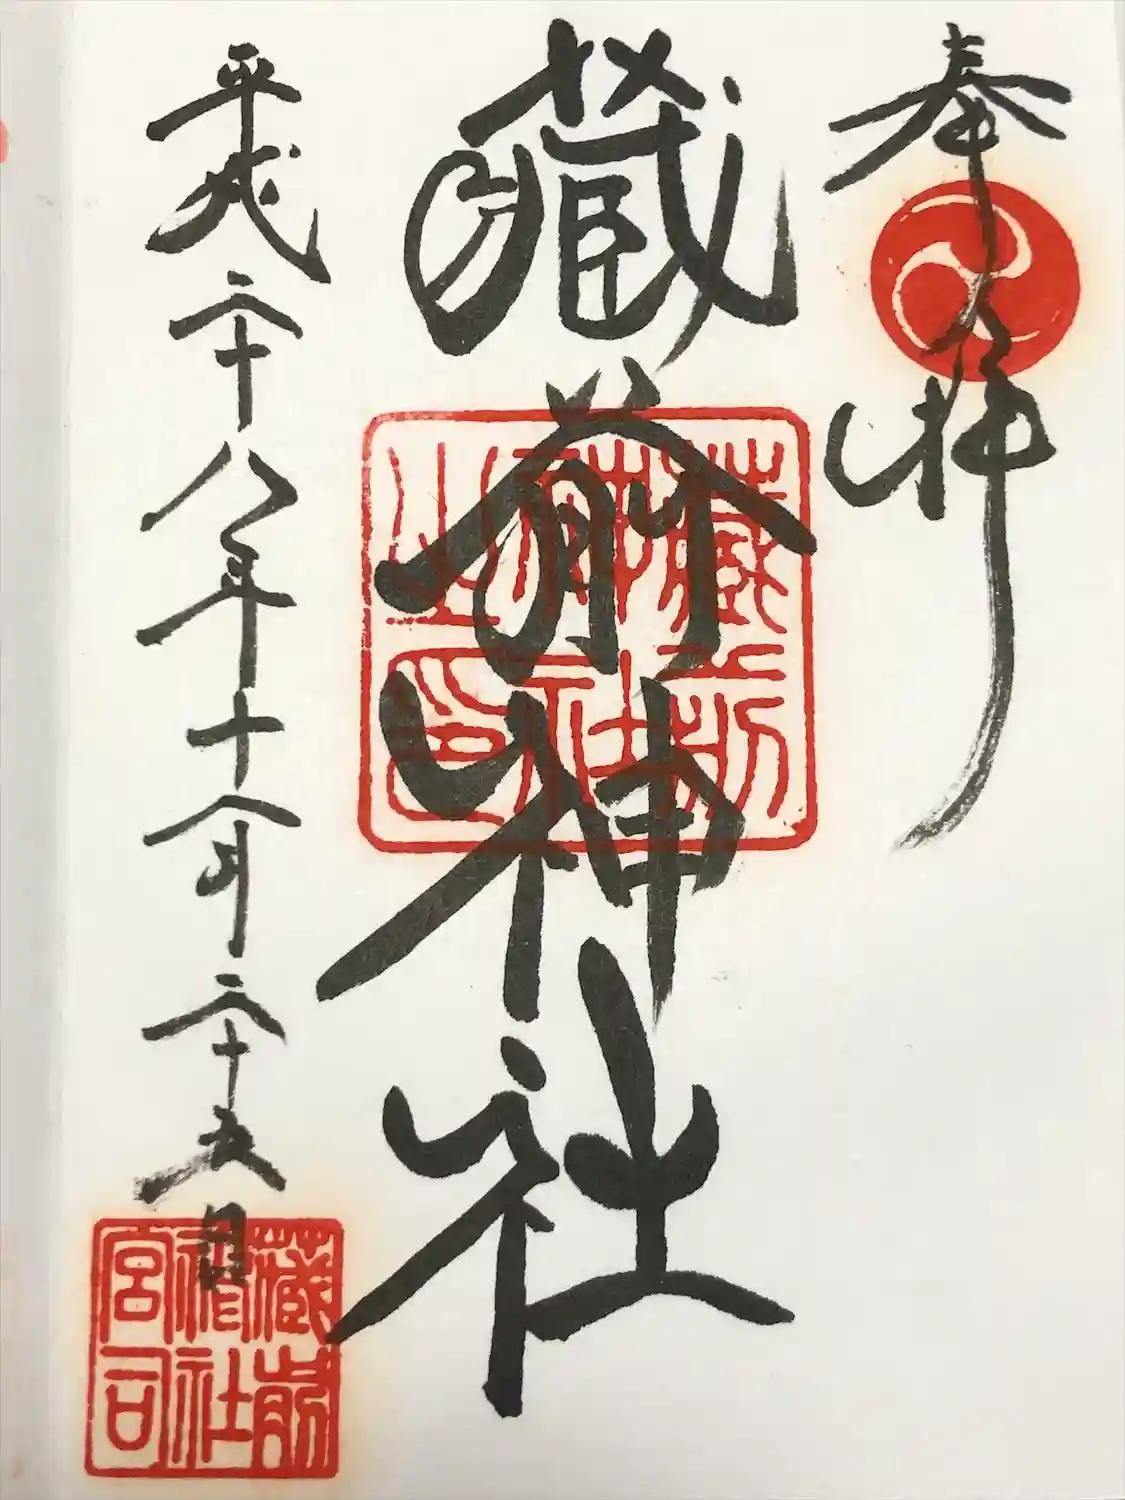 奉拝
藏前神社
藏前神社之印
平成二十八年十一月二十五日
藏前神社宮司